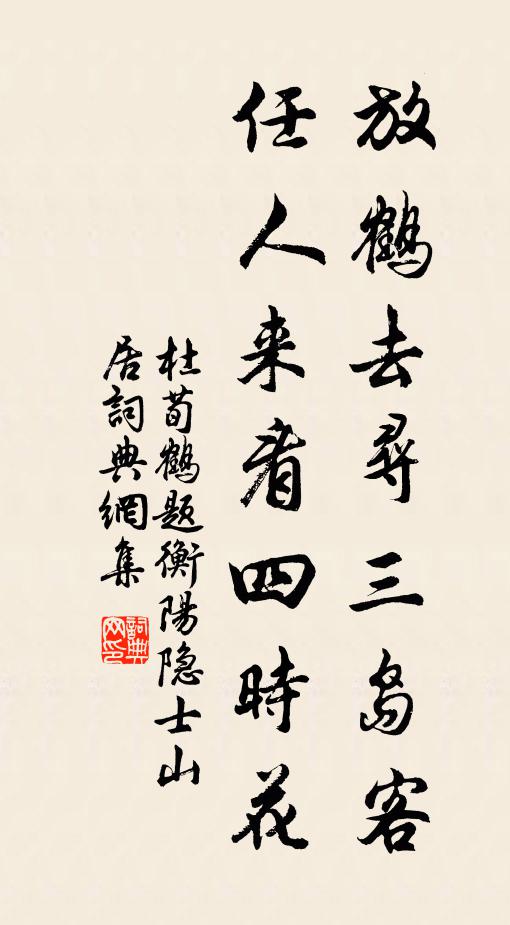 放鶴去尋三岛客
任人来看四時花
杜荀鶴题衡陽隐士山
居詞典網集
詞典
网印